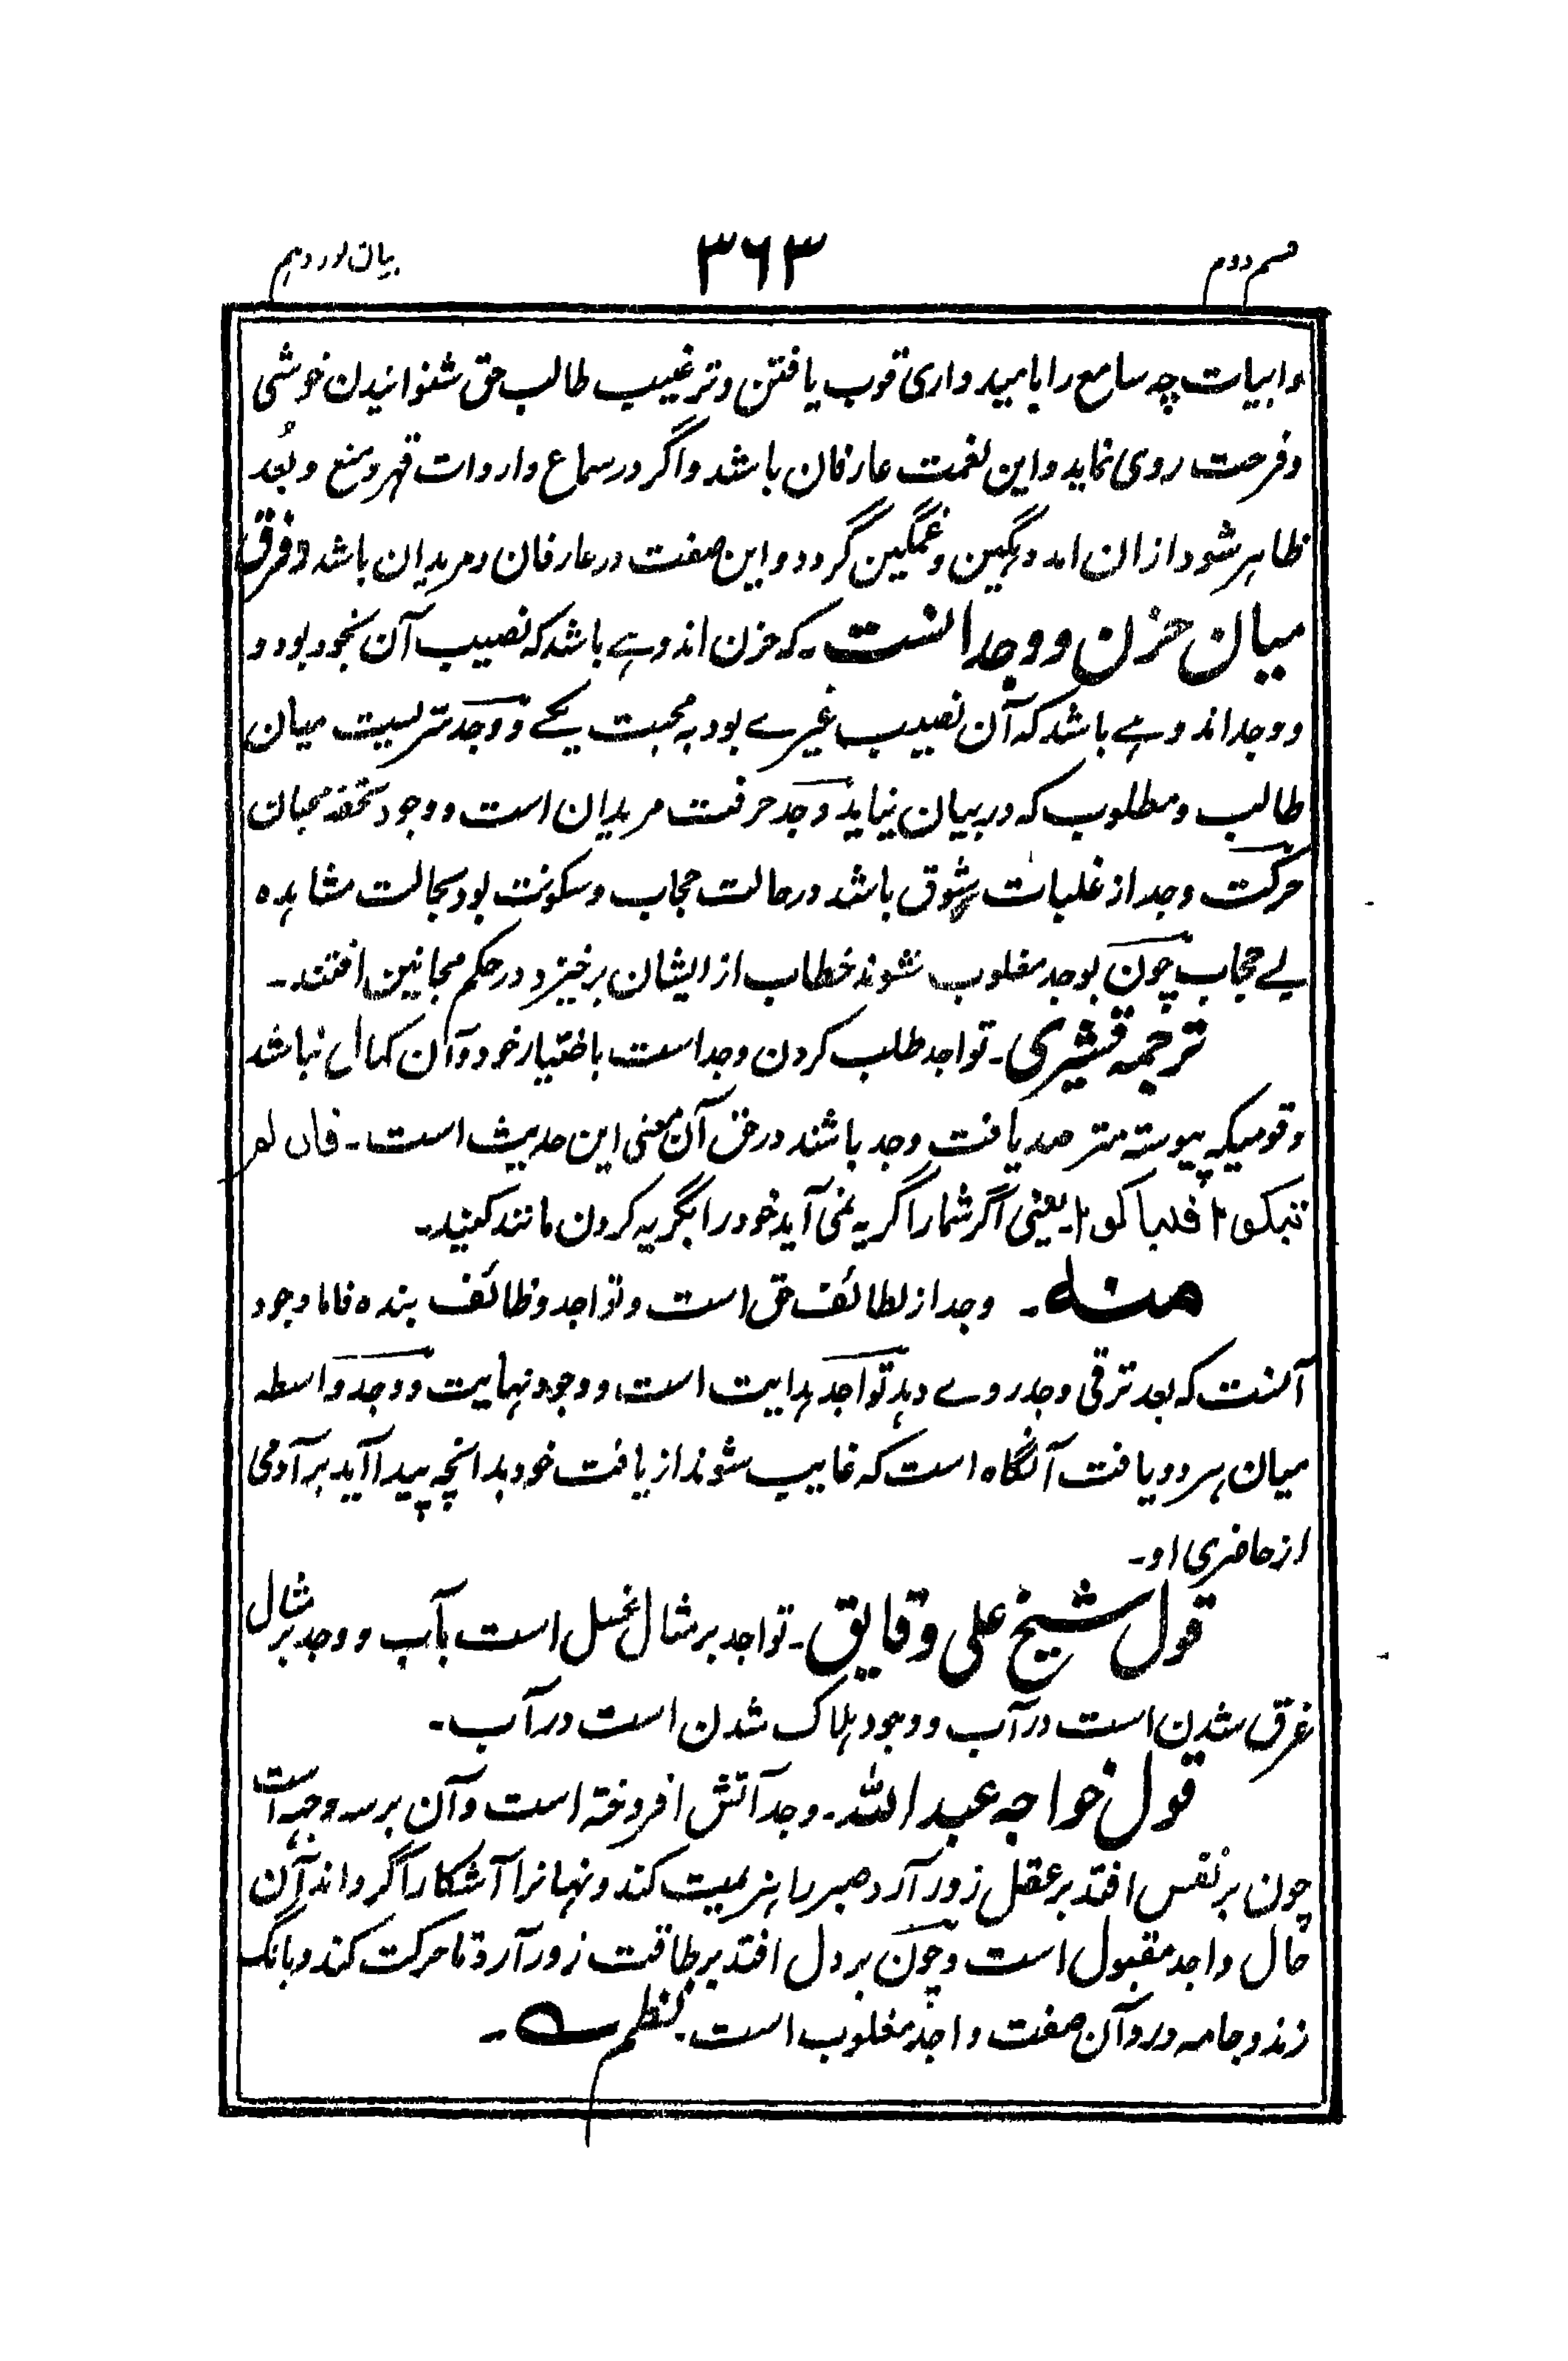 قسم دوم ۳۶۳ بیان نوردہم
وابیات چہ سامع را بامیدواری قوب یافتن وترغیب طالب حق شنوانیدن خوشی
وفرحت روی نماید واین نغمت عارفان باشد واگر درسماع واردات قہر ومنع وبُعد
ظاہر شود ازان اندوہگین وغمگین گردد واین صفت درعارفان ومریدان باشد وفرق
میان حزن ووجد انست۔ کہ حزن اندوہے باشد کہ نصیب آن بخود بود و
ووجد اندوہے باشد کہ آن نصیب غیرے بود بہ محبت یکے ووجد سریست میان
طالب ومطلوب کہ دربیان نیاید وجد حرفت مریدان است ووجود تحفۂ محبان
حرکت وجد از غلبات شوق باشد درحالت حجاب وسکونت بود بحالت مشاہدہ
بے حجاب چون بوجد مغلوب شوند خطاب از ایشان برخیزد درحکم مجانین افتند۔
ترجمہ قشیری۔ تواجد طلب کردن وجد است باختیار خود وآن کمال نباشد
وقومیکہ پیوستہ مترصد یافت وجد باشند درحق آن معنی این حدیث است۔ فان لم
تبکوا فتباکوا۔ یعنی اگر شما را گریہ نمی آید خود را بگریہ کردن مانند کنید۔
منہ۔ وجد از لطائف حق است وتواجد وظائف بندہ فاما وجود
آنست کہ بعد ترقی وجد روے دہد تواجد بدایت است ووجود نہایت ووجد واسطہ
میان ہر دو یافت آنگاہ است کہ غایب شوند از یافت خود بدانچہ پیدا آید بر آدمی
از حاضری او۔
قول شیخ علی وقایق۔ تواجد بر مثال غسل است بآب ووجد بر مثال
غرق شدن است درآب ووجود ہلاک شدن است درآب۔
قول خواجہ عبد اللہ۔ وجد آتش افروختہ است وآن بر سہ وجہ است
چون بر نفس افتد بر عقل زور آرد صبر را ہزیمیت کند ونہانرا آشکارا گرداند آن
حال واجد مقبول است وچون بر دل افتد بر طاقت زور آرد تا حرکت کند وبانگ
زند وجامہ درد وآن صفت واجد مغلوب است۔ نظم۔